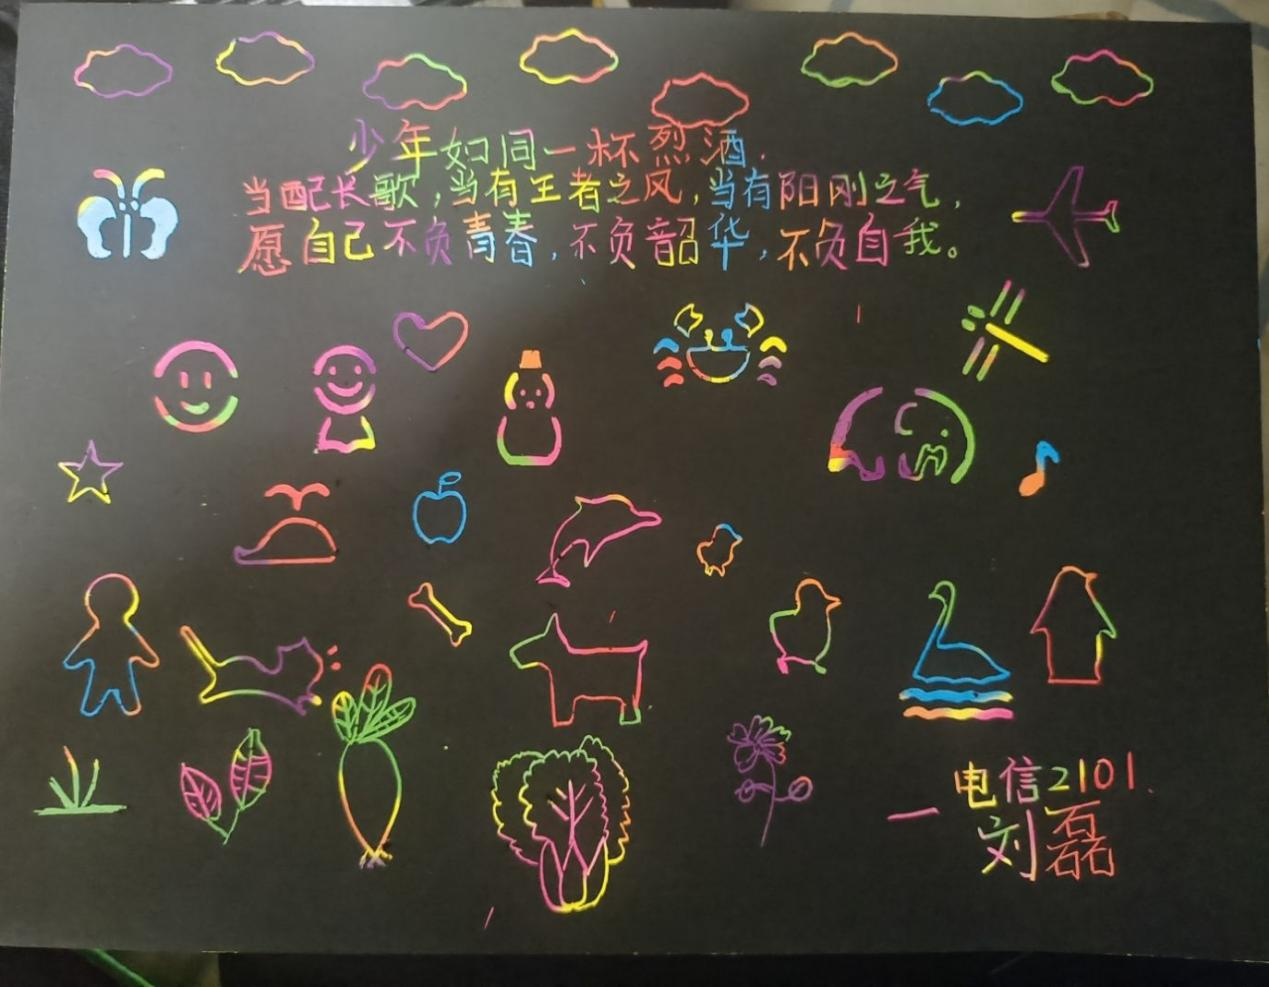 少年如同一杯烈酒.
当配长歌,当有王者之风,当有阳刚之气,
愿自己不负青春,不负韶华,不负自我。
电信2101.
一 刘磊